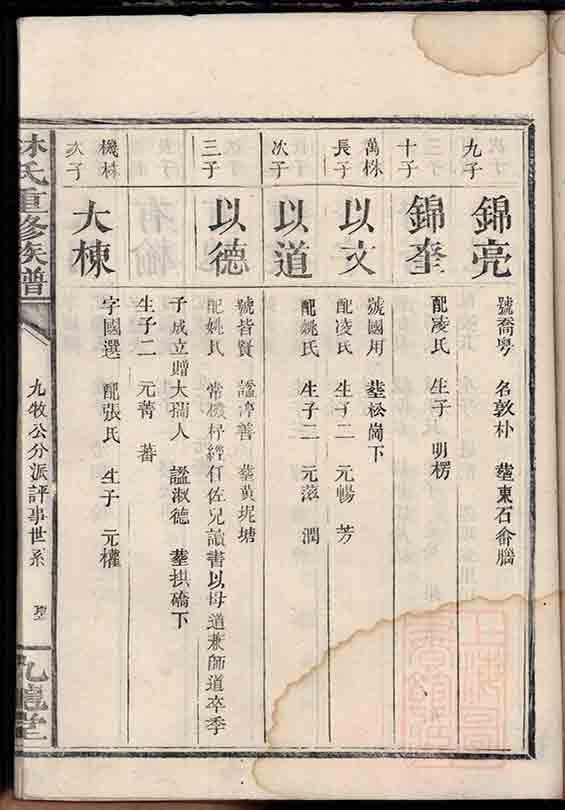 九子
錦亮
號喬粤 名敦朴 塟東石畲腦
十子
錦奎
配凌氏 生子 明楞
萬株
長子
以文
號國用 塟松崗下
配凌氏 生子二 元暢 芳
次子
以道
配姚氏 生子二 元蓂 潤
三子
以德
號皆賢 諡淳善 塟黄坭塘
配姚氏 常機杼經 佐兄讀書以母道兼師道卒季
子成立贈大孺人 諡淑德 塟拱磡下
生子二 元菁 蕃
機株
次子
大棟
字國選 配張氏 生子 元權
林氏重修族譜
九牧公分派評事世系
九龍堂